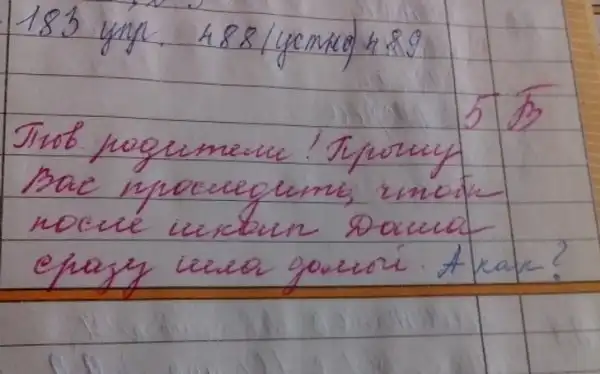 183 упр. 488 (устно) 489
5 В
Ув. родители! Прошу
Вас проследить, чтобы
после школы Даша
сразу шла домой. А как?